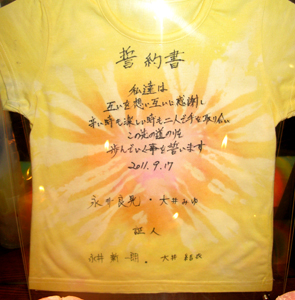 誓約書
私達は
互いを想い互いに感謝し
辛い時も楽しい時も二人で手を取り合い
この先の道のりを
歩んでいく事を誓います
2011.9.17
永井良晃・大井みゆ
証人
永井新一朗・大井